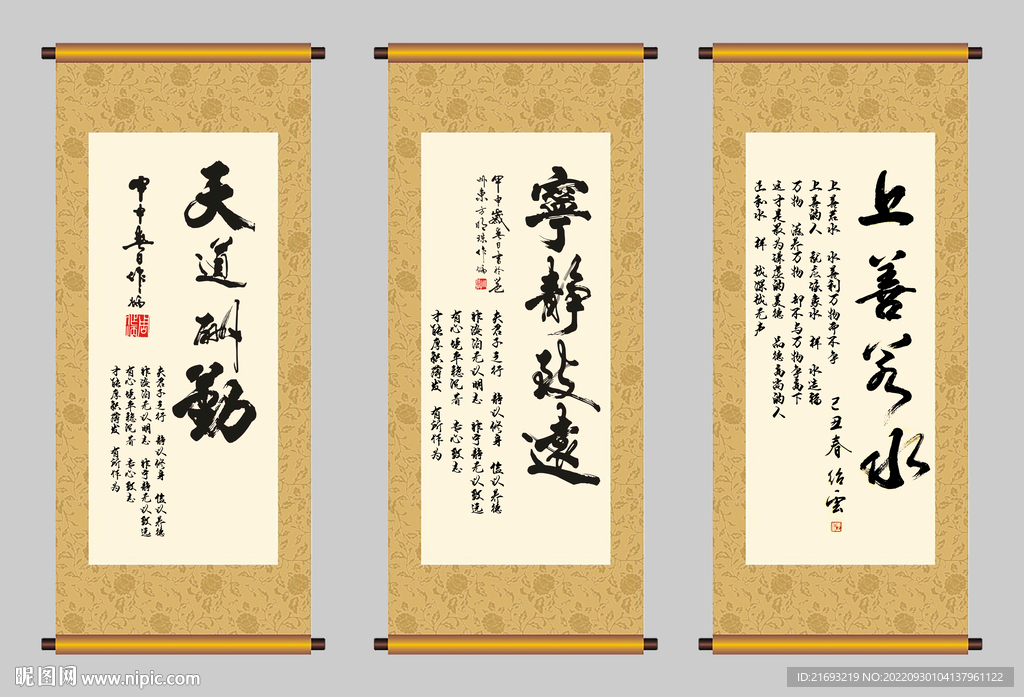 天道酬勤
甲申春日作编
夫君子之行 静以修身 俭以养德
非淡泊无以明志 非宁静无以致远
有心境平稳沉着 专心致志
才能厚积薄发 有所作为
寧静致遠
甲申歲春日書於蓉
东方明珠作编
夫君子之行 静以修身 俭以养德
非淡泊无以明志 非宁静无以致远
有心境平稳沉着 专心致志
才能厚积薄发 有所作为
上善若水
上善若水 水善利万物而不争
上善的人 就应该象水一样 水造福
万物 滋养万物 却不与万物争高下
这才是最为谦虚的美德 品德高尚的人
己丑春 绍雲
昵图网 www.nipic.com
ID:21693219 NO:20220930104137961122